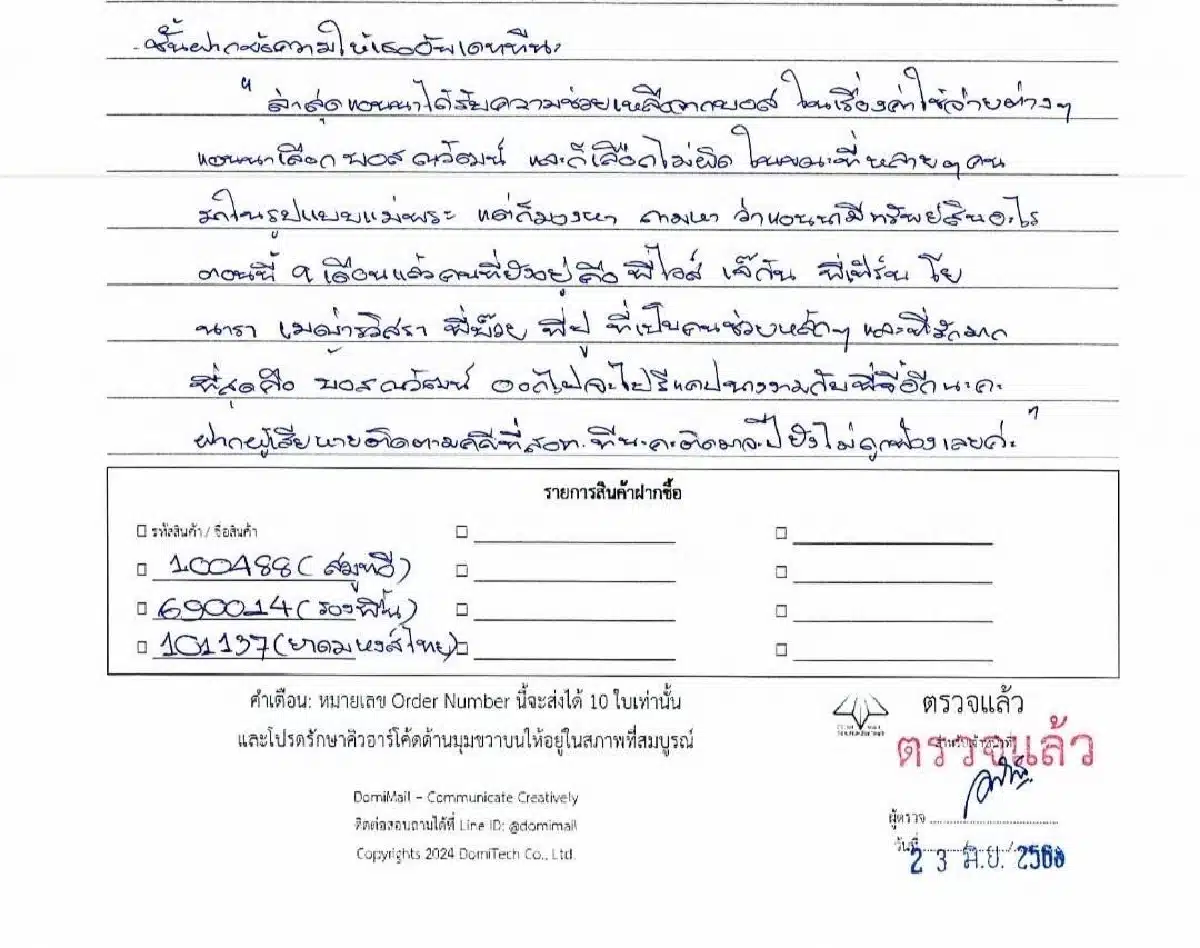 - ชั้นฝากข้อความให้เธออัพเดททีนะ
" ล่าสุดแอนนาได้รับความช่วยเหลือจากบอส ในเรื่องค่าใช้จ่ายต่างๆ
แอนนาเลือก บอส ณวัฒน์ และก็เลือกไม่ผิด ในขณะที่หลายๆคน
รักในรูปแบบแม่พระ แต่ก็มองหา ถามหา ว่าแอนนามีทรัพย์สินอะไร
ตอนนี้ 9 เดือนแล้วคนที่ยังอยู่คือ พี่ไอส์ เจ๊กัน พี่เฟิร์น โย
นารา เมญ่ารวิสรา พี่บ๊วย พี่ปู ที่เป็นคนช่วยหลักๆ และที่รักมาก
ที่สุดคือ บอสณวัฒน์ ออกไปจะไปรีแคปนางงามกับพี่จี้อีกนะคะ
ฝากผู้เสียหายติดตามคดีที่ สอท. ทีนะคะติดมาจะปียังไม่ถูกฟ้องเลยค่ะ "
รายการสินค้าฝากซื้อ
รหัสสินค้า / ชื่อสินค้า
100488 (สมูทอี)
690014 (รองพื้น)
101137 (ยาดมหงส์ไทย)
คำเตือน: หมายเลข Order Number นี้จะส่งได้ 10 ใบเท่านั้น
และโปรดรักษาคิวอาร์โค้ดด้านมุมขวาบนให้อยู่ในสภาพที่สมบูรณ์
DomiMail – Communicate Creatively
ติดต่อสอบถามได้ที่ Line ID: @domimail
Copyrights 2024 DomiTech Co., Ltd.
ตรวจแล้ว
ตรวจแล้ว
สำหรับเจ้าหน้าที่
ผู้ตรวจ
วันที่
23 มิ.ย. 2568